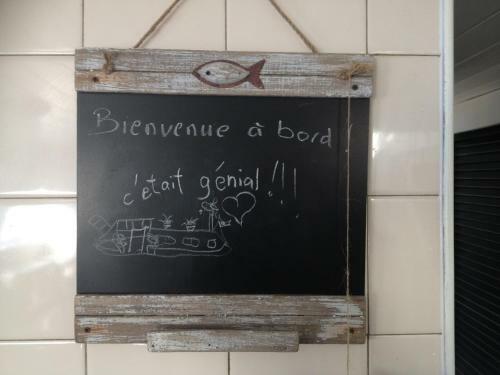 Bienvenue à bord
c'était génial!!!